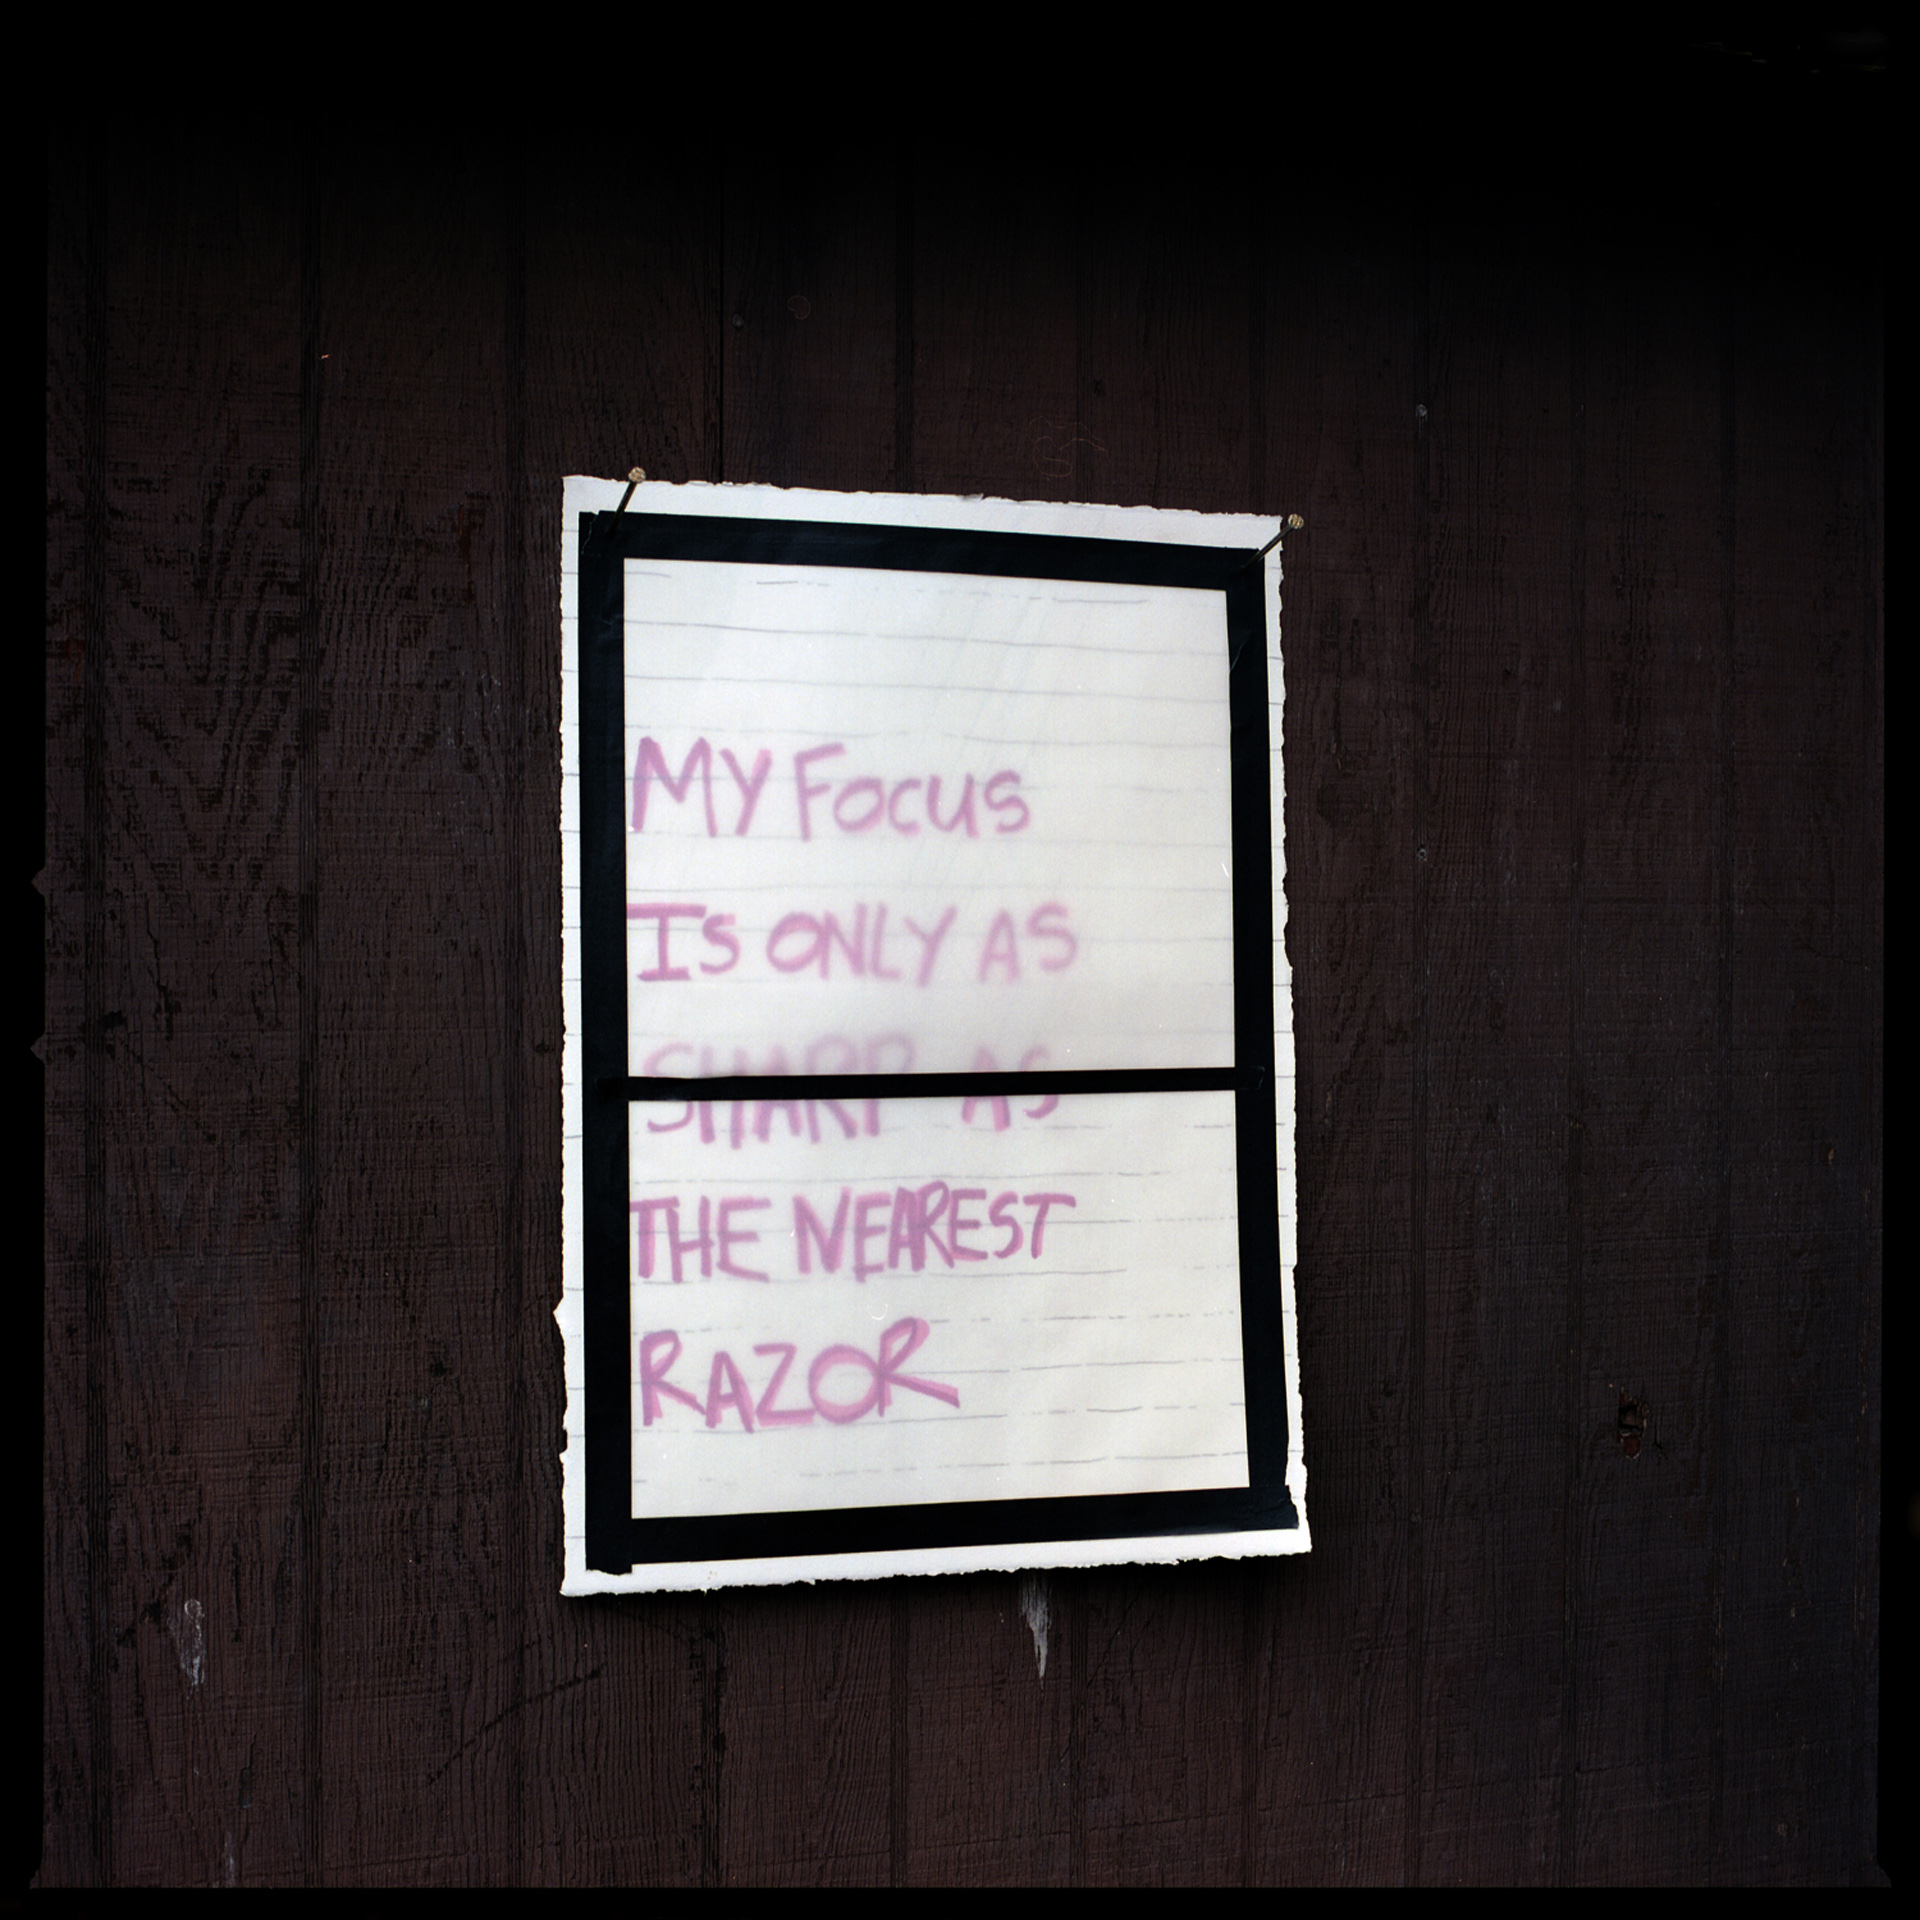 MY FOCUS
IS ONLY AS
SHARP AS
THE NEAREST
RAZOR